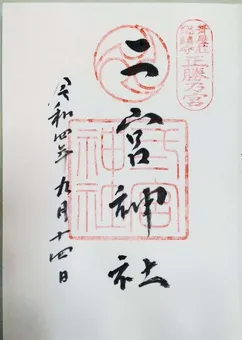 正勝乃宮
二宮神社
二宮
神社
令和四年九月十四日